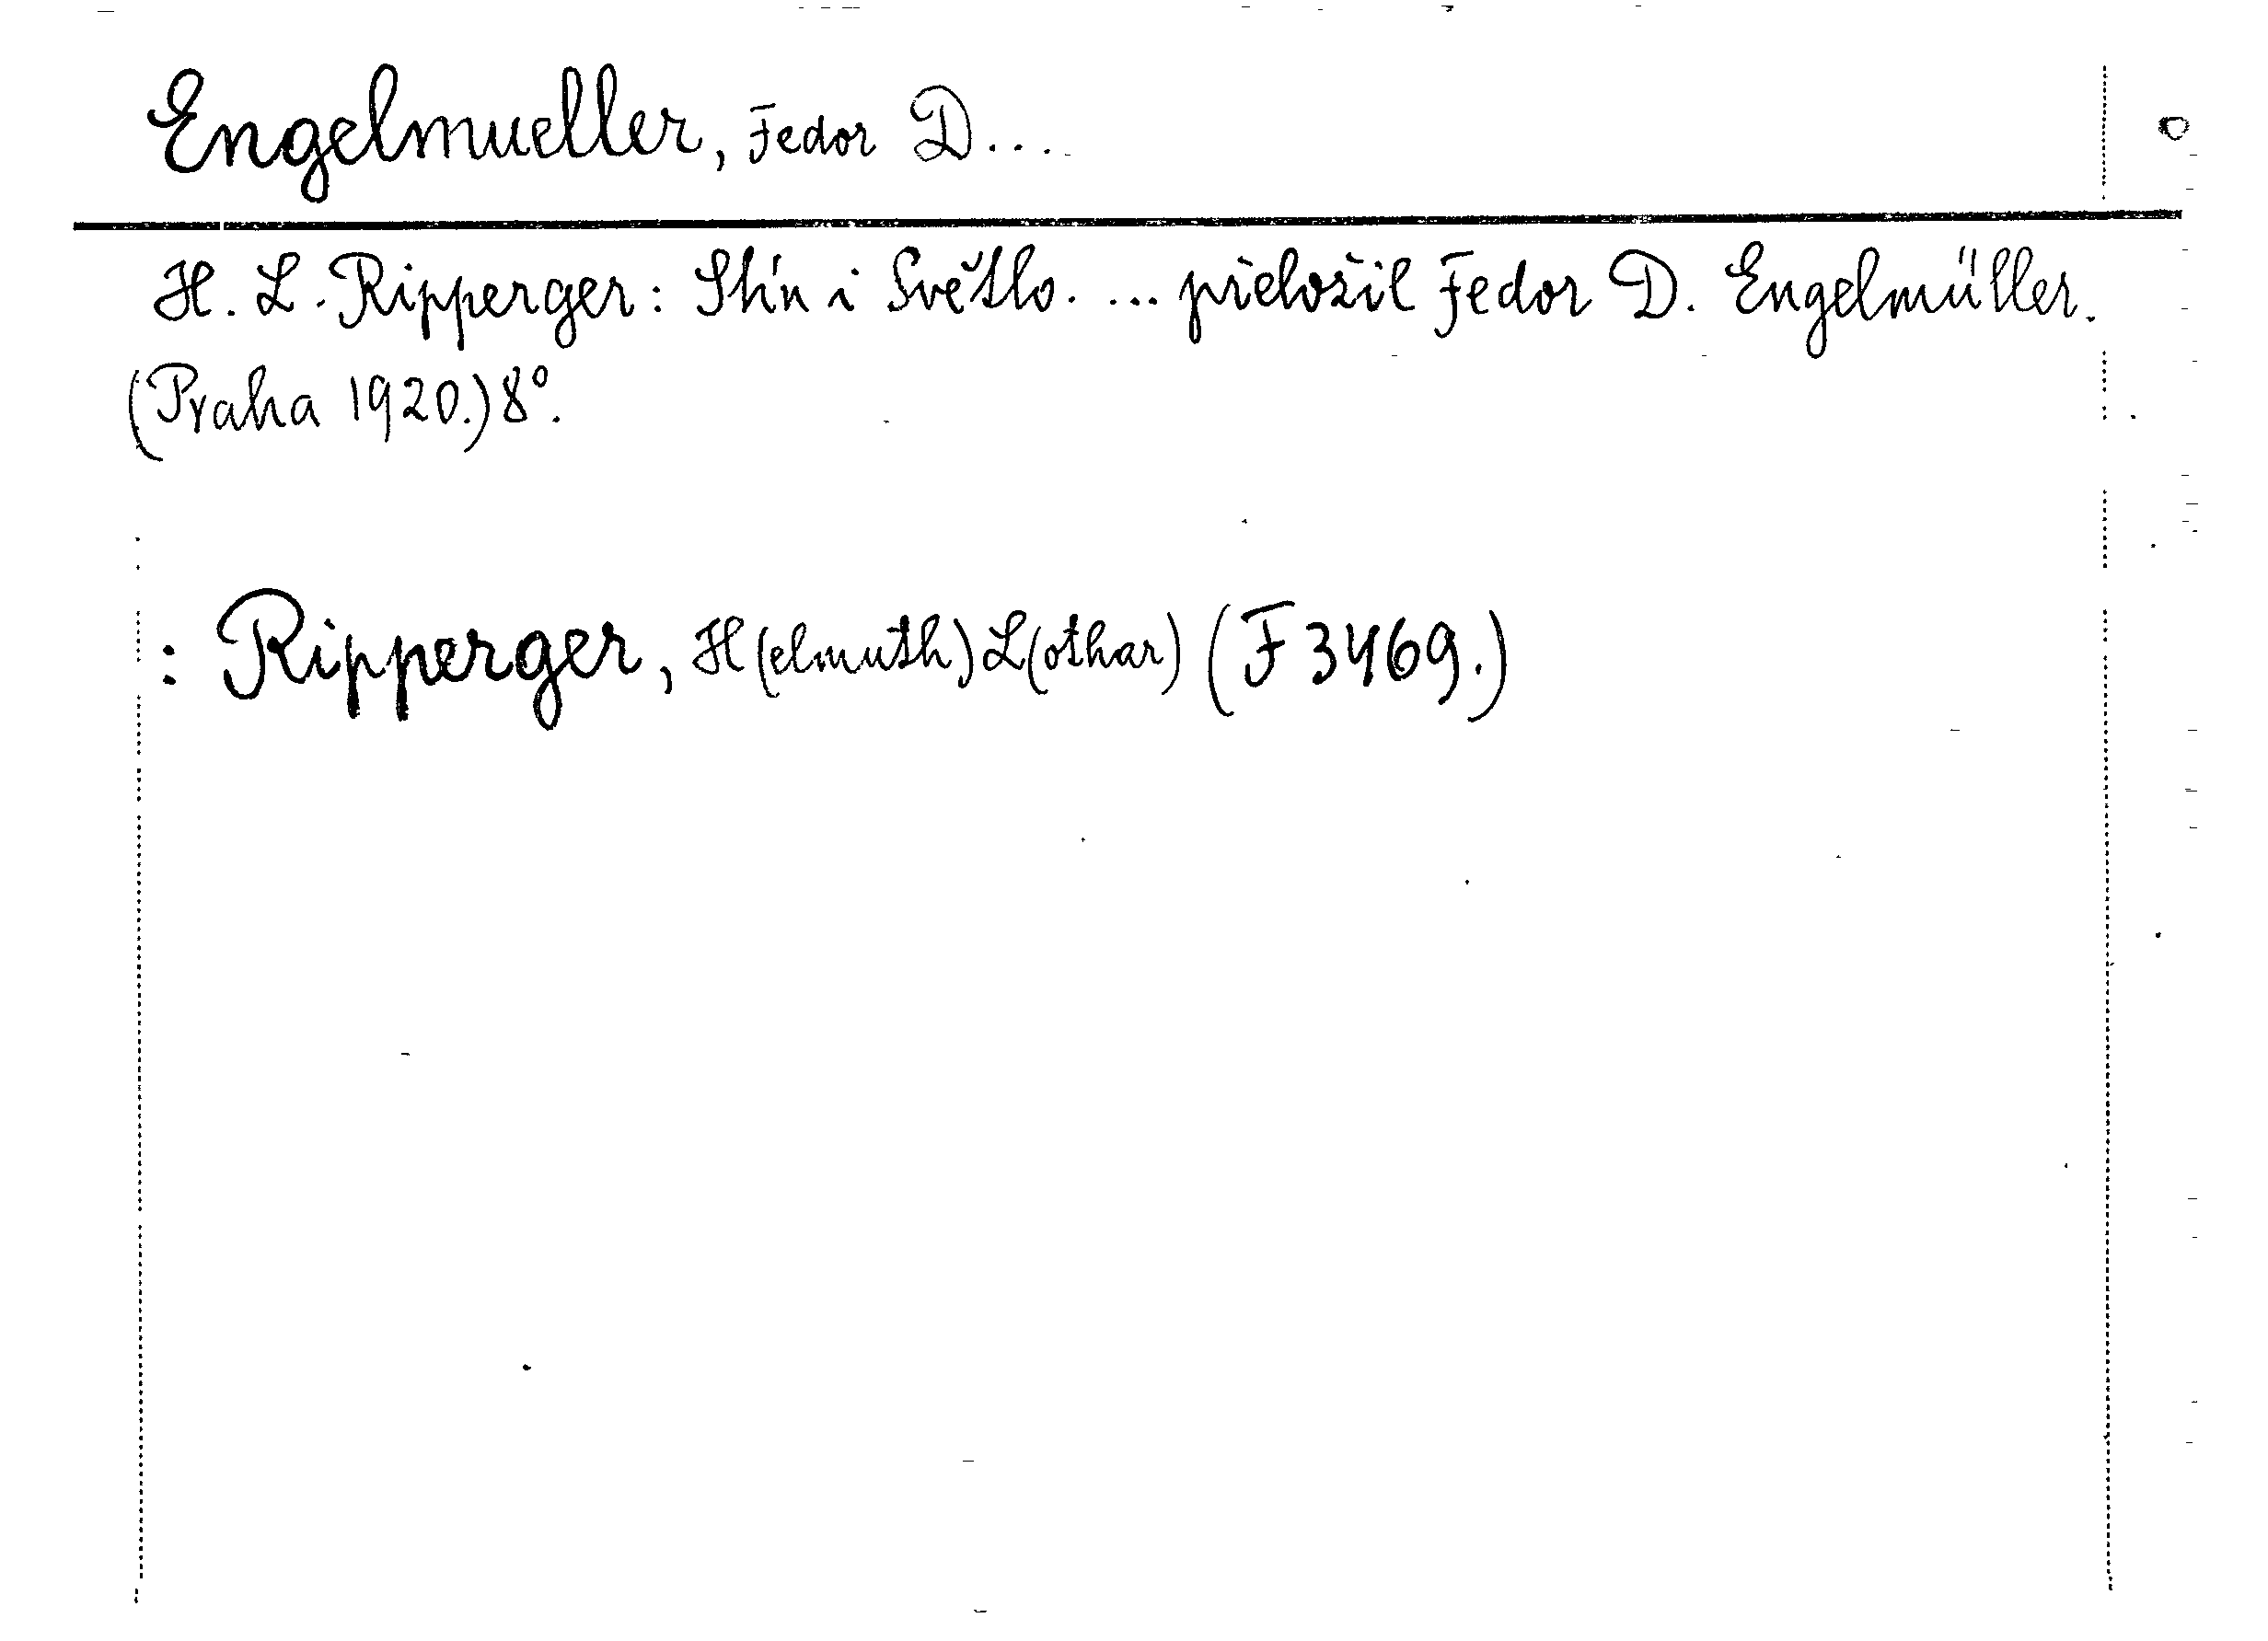 Engelmueller, Fedor D....
H. L. Ripperger: Stín i Světlo. ... přeložil Fedor D. Engelmüller.
(Praha 1920.) 8°.
: Ripperger, H(elmuth) L(othar) (F 3469.)